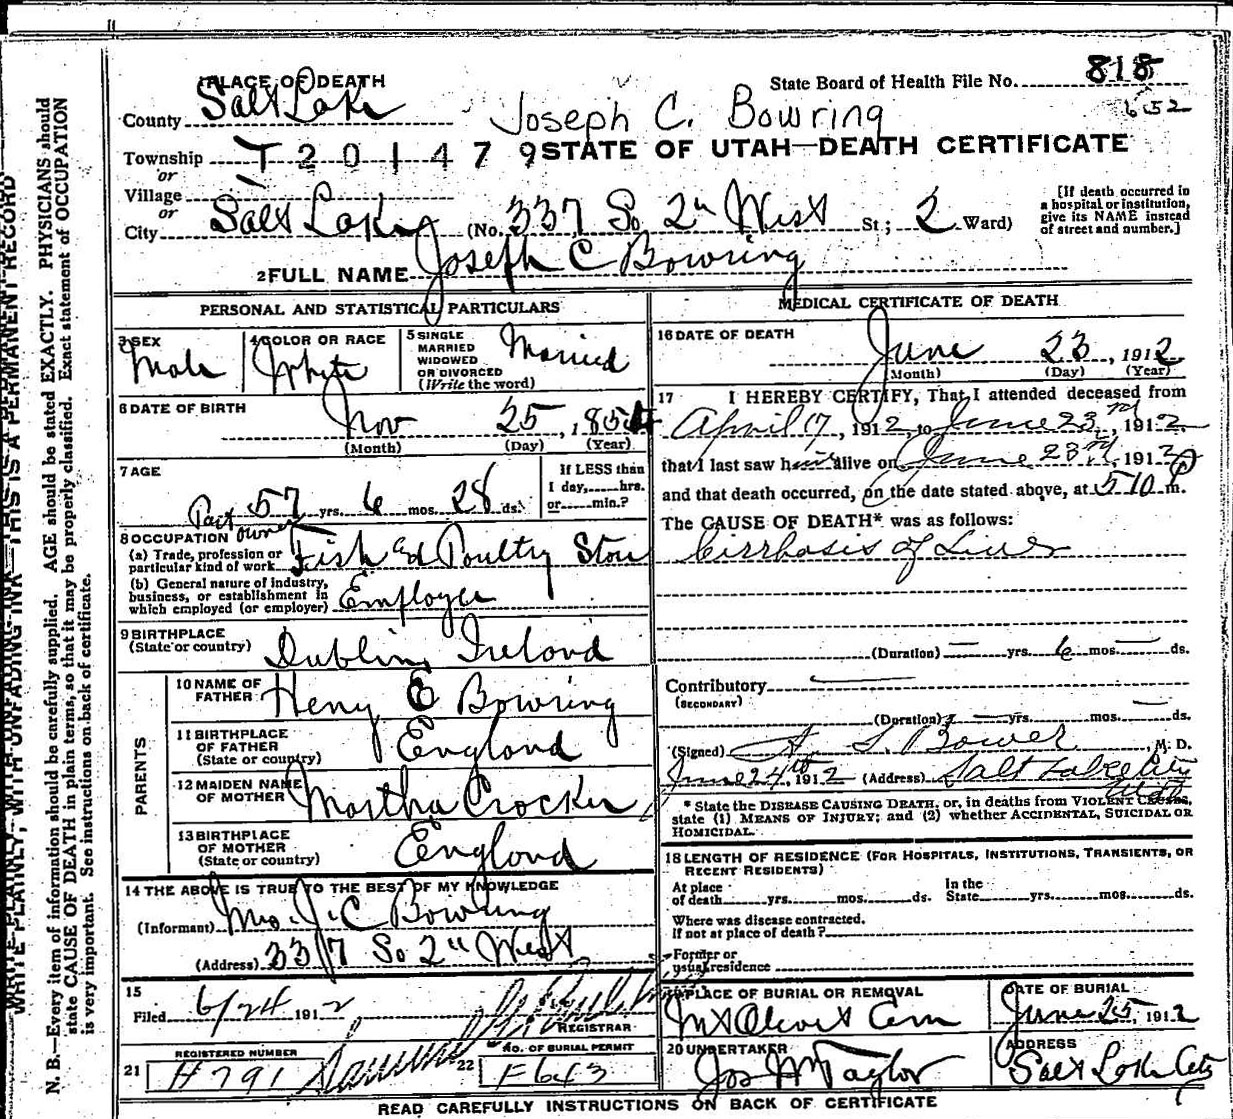 PLACE OF DEATH
State Board of Health File No. 818
County Salt Lake
652
Joseph C. Bowring
Township T 2 0 1 4 7 9 STATE OF UTAH—DEATH CERTIFICATE
or
Village
or
City Salt Lake (No. 337 So 2n West St; 2 Ward)
[If death occurred in
a hospital or institution,
give its NAME instead
of street and number.]
2 FULL NAME Joseph C Bowring
PERSONAL AND STATISTICAL PARTICULARS
3 SEX
Male
4 COLOR OR RACE
White
5 SINGLE
MARRIED
WIDOWED
OR DIVORCED
(Write the word)
Married
6 DATE OF BIRTH
Nov 25, 1854
(Month) (Day) (Year)
7 AGE
57 yrs. 6 mos. 28 ds.
If LESS than
1 day, hrs.
or min.?
8 OCCUPATION
(a) Trade, profession or
particular kind of work
Part owner
Fish and Poultry Store
(b) General nature of industry,
business, or establishment in
which employed (or employer)
Employer
9 BIRTHPLACE
(State or country)
Dublin, Ireland
PARENTS
10 NAME OF
FATHER
Henry E Bowring
11 BIRTHPLACE
OF FATHER
(State or country)
England
12 MAIDEN NAME
OF MOTHER
Martha Crocker
13 BIRTHPLACE
OF MOTHER
(State or country)
England
14 THE ABOVE IS TRUE TO THE BEST OF MY KNOWLEDGE
(Informant) Mrs. J. C Bowring
(Address) 337 So 2n West
15
Filed 6/24 1912
REGISTRAR
REGISTERED NUMBER
21 H 791
NO. OF BURIAL PERMIT
22 F643
MEDICAL CERTIFICATE OF DEATH
16 DATE OF DEATH
June 23, 1912
(Month) (Day) (Year)
17 I HEREBY CERTIFY, That I attended deceased from
April 17, 1912, to June 23rd, 1912,
that I last saw him alive on June 23rd, 1912
and that death occurred, on the date stated above, at 510 P m.
The CAUSE OF DEATH* was as follows:
Cirrhosis of Liver
(Duration) — yrs. 6 mos. — ds.
Contributory
(SECONDARY)
(Duration) — yrs. mos. — ds.
(Signed) A. S. Bower, M. D.
June 24th, 1912 (Address) Salt Lake City
Utah
* State the DISEASE CAUSING DEATH, or, in deaths from VIOLENT CAUSES,
state (1) MEANS OF INJURY; and (2) whether ACCIDENTAL, SUICIDAL OR
HOMICIDAL.
18 LENGTH OF RESIDENCE (FOR HOSPITALS, INSTITUTIONS, TRANSIENTS, OR
RECENT RESIDENTS)
At place
of death yrs. mos. ds.
In the
State yrs. mos. ds.
Where was disease contracted.
If not at place of death?
Former or
usual residence
PLACE OF BURIAL OR REMOVAL
Mt Olivet Cem
DATE OF BURIAL
June 25, 1912
20 UNDERTAKER
Jos Wm Taylor
ADDRESS
Salt Lake City
READ CAREFULLY INSTRUCTIONS ON BACK OF CERTIFICATE
WRITE PLAINLY, WITH UNFADING INK—THIS IS A PERMANENT RECORD
N. B.—Every item of information should be carefully supplied. AGE should be stated EXACTLY. PHYSICIANS should
state CAUSE OF DEATH in plain terms, so that it may be properly classified. Exact statement of OCCUPATION
is very important. See instructions on back of certificate.